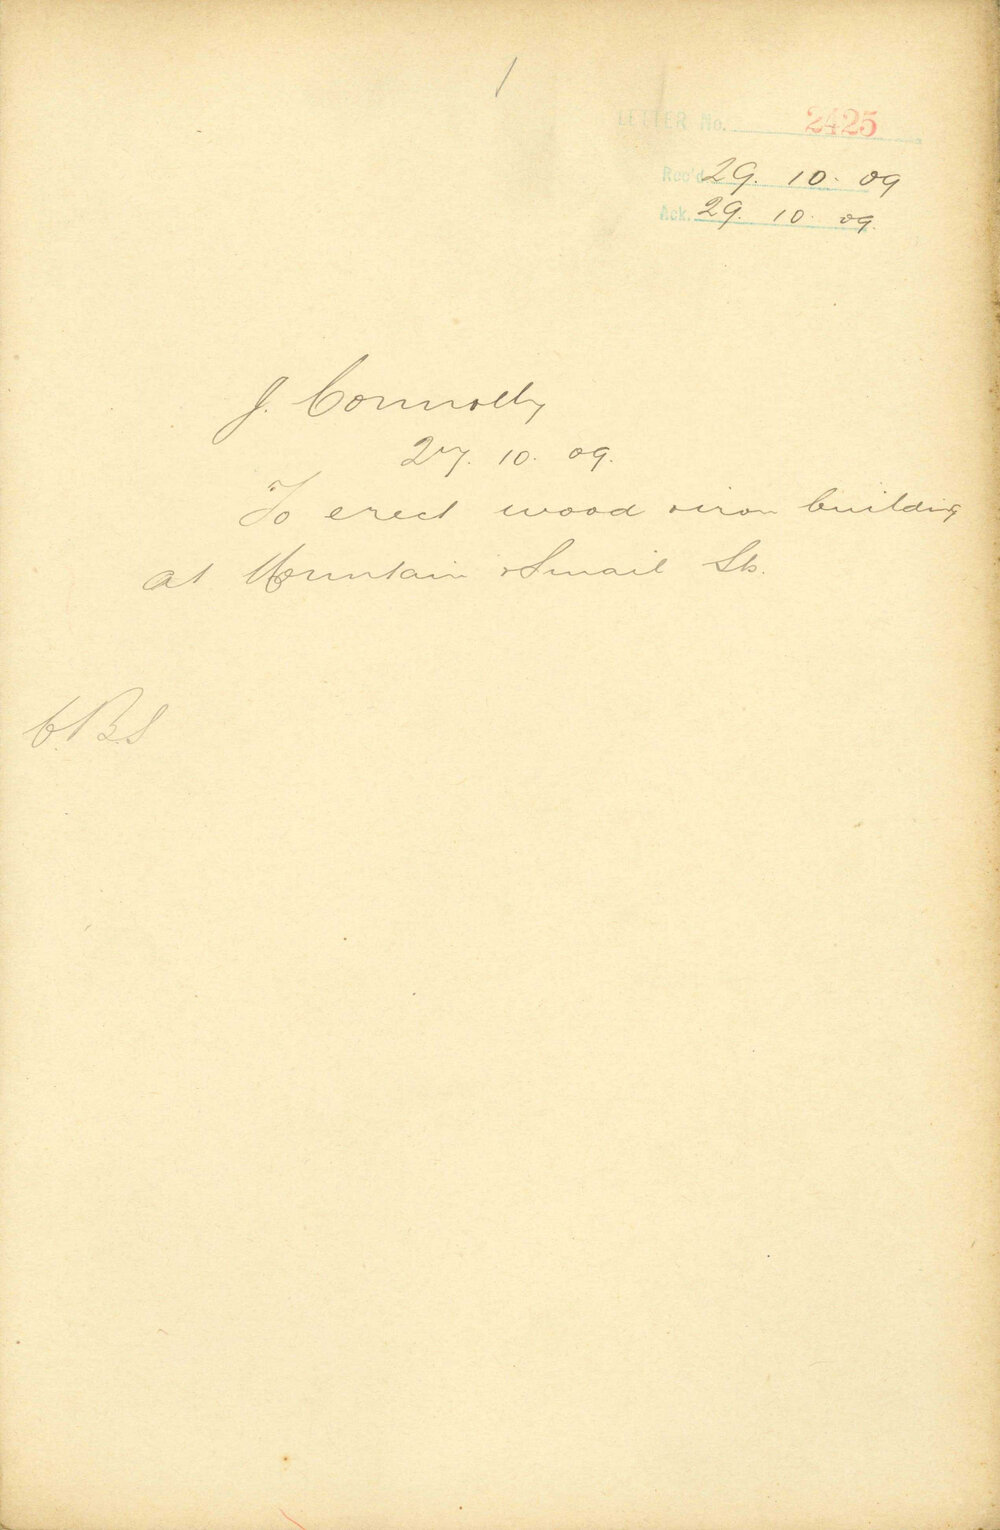 1
LETTER No. 2425
Rec'd 29. 10. 09
Ack. 29. 10. 09.
J. Connolly
27. 10. 09.
To erect wood & iron building
at Mountain & Smail Sts.
C.B.S